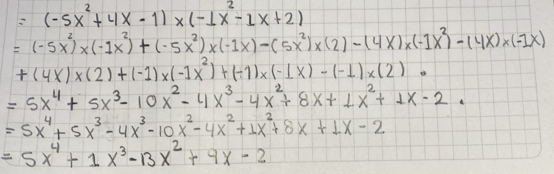 = (-5x²+4x-1)×(-1x²-1x+2)
= (-5x²)×(-1x²)+(-5x²)×(-1x)-(5x²)×(2)-(4x)×(-1x²)-(4x)×(-1x)
+(4x)×(2)+(-1)×(-1x²)+(-1)×(-1x)-(-1)×(2).
= 5x⁴+5x³-10x²-4x³-4x²+8x+1x²+1x-2.
= 5x⁴+5x³-4x³-10x²-4x²+1x²+8x+1x-2
= 5x⁴+1x³-13x²+9x-2